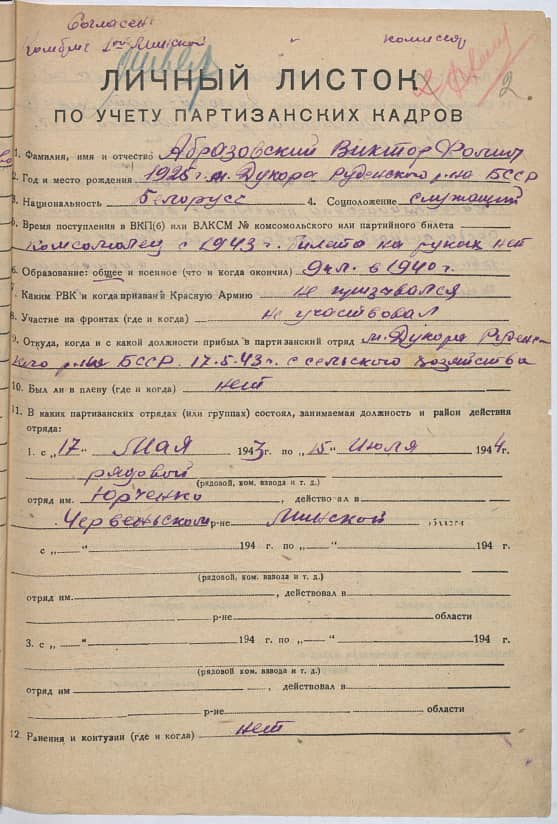 Согласен
комбриг 1ой Минской комиссар
2
ЛИЧНЫЙ ЛИСТОК
ПО УЧЕТУ ПАРТИЗАНСКИХ КАДРОВ
1. Фамилия, имя и отчество Абразовский Виктор Фомич
2. Год и место рождения 1925 г. м. Дукора Руденского р-на БССР
3. Национальность белорусс 4. Соцположение служащий
5. Время поступления в ВКП(б) или ВЛКСМ № комсомольского или партийного билета
комсомолец с 1943 г. билета на руках нет
6. Образование: общее и военное (что и когда окончил) 9 кл. в 1940 г.
7. Каким РВК и когда призван в Красную Армию не призывался
8. Участие на фронтах (где и когда) не участвовал
9. Откуда, когда и с какой должности прибыл в партизанский отряд м. Дукора Руденс-
кого р-на БССР. 17.5.43 г. с сельского хозяйства
10. Был ли в плену (где и когда) нет
11. В каких партизанских отрядах (или группах) состоял, занимаемая должность и район действия
отряда:
1. с „17" Мая 1943 г. по „15" Июля 1944 г.
рядовой
(рядовой, ком. взвода и т. д.)
отряд им. Юрченко, действовал в
Червеньском р-не Минской области
с „ " 194 г. по „ " 194 г.
(рядовой, ком. взвода и т. д.)
отряд им. , действовал в
р-не области
3. с „ " 194 г. по „ " 194 г.
(рядовой, ком. взвода и т. д.)
отряд им , действовал в
р-не области
12. Ранения и контузии (где и когда) нет